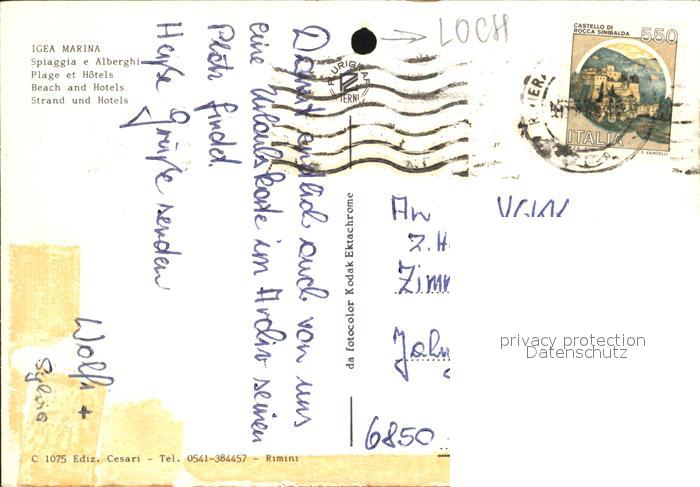 IGEA MARINA
Spiaggia e Alberghi
Plage et Hôtels
Beach and Hotels
Strand und Hotels
LOCH
CASTELLO DI
ROCCA SINIBALDA
550
ITALIA
PLURIGRAF
TERNI
Damit endlich auch von uns
eine Urlaubskarte im Archiv seinen
Platz findet
Heiße Grüße senden
Wolfi +
Sylvia
da fotocolor Kodak Ektachrome
An
z.H
Zimm
Jahn
6850
privacy protection
Datenschutz
C 1075 Ediz. Cesari - Tel. 0541-384457 - Rimini